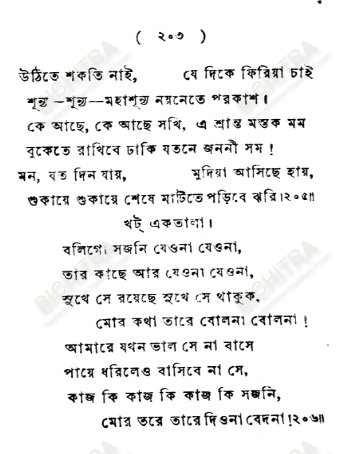 ( ২০৩ )
উঠিতে শকতি নাই, যে দিকে ফিরিয়া চাই
শূন্য –শূন্য––মহাশূন্য নয়নেতে পরকাশ।
কে আছে, কে আছে সখি, এ শ্রান্ত মস্তক মম
বুকেতে রাখিবে ঢাকি যতনে জননী সম!
মন, যত দিন যায়, মুদিয়া আসিছে হায়,
শুকায়ে শুকায়ে শেষে মাটিতে পড়িবে ঝরি।২০৫॥
খট্ একতালা।
বলিগো সজনি যেওনা যেওনা,
তার কাছে আর যেওনা যেওনা,
সুখে সে রয়েছে সুখে সে থাকুক,
মোর কথা তারে বোলনা বোলনা!
আমারে যখন ভাল সে না বাসে
পায়ে ধরিলেও বাসিবে না সে,
কাজ কি কাজ কি কাজ কি সজনি,
মোর তরে তারে দিওনা বেদনা!২০৬॥
BICHITRA